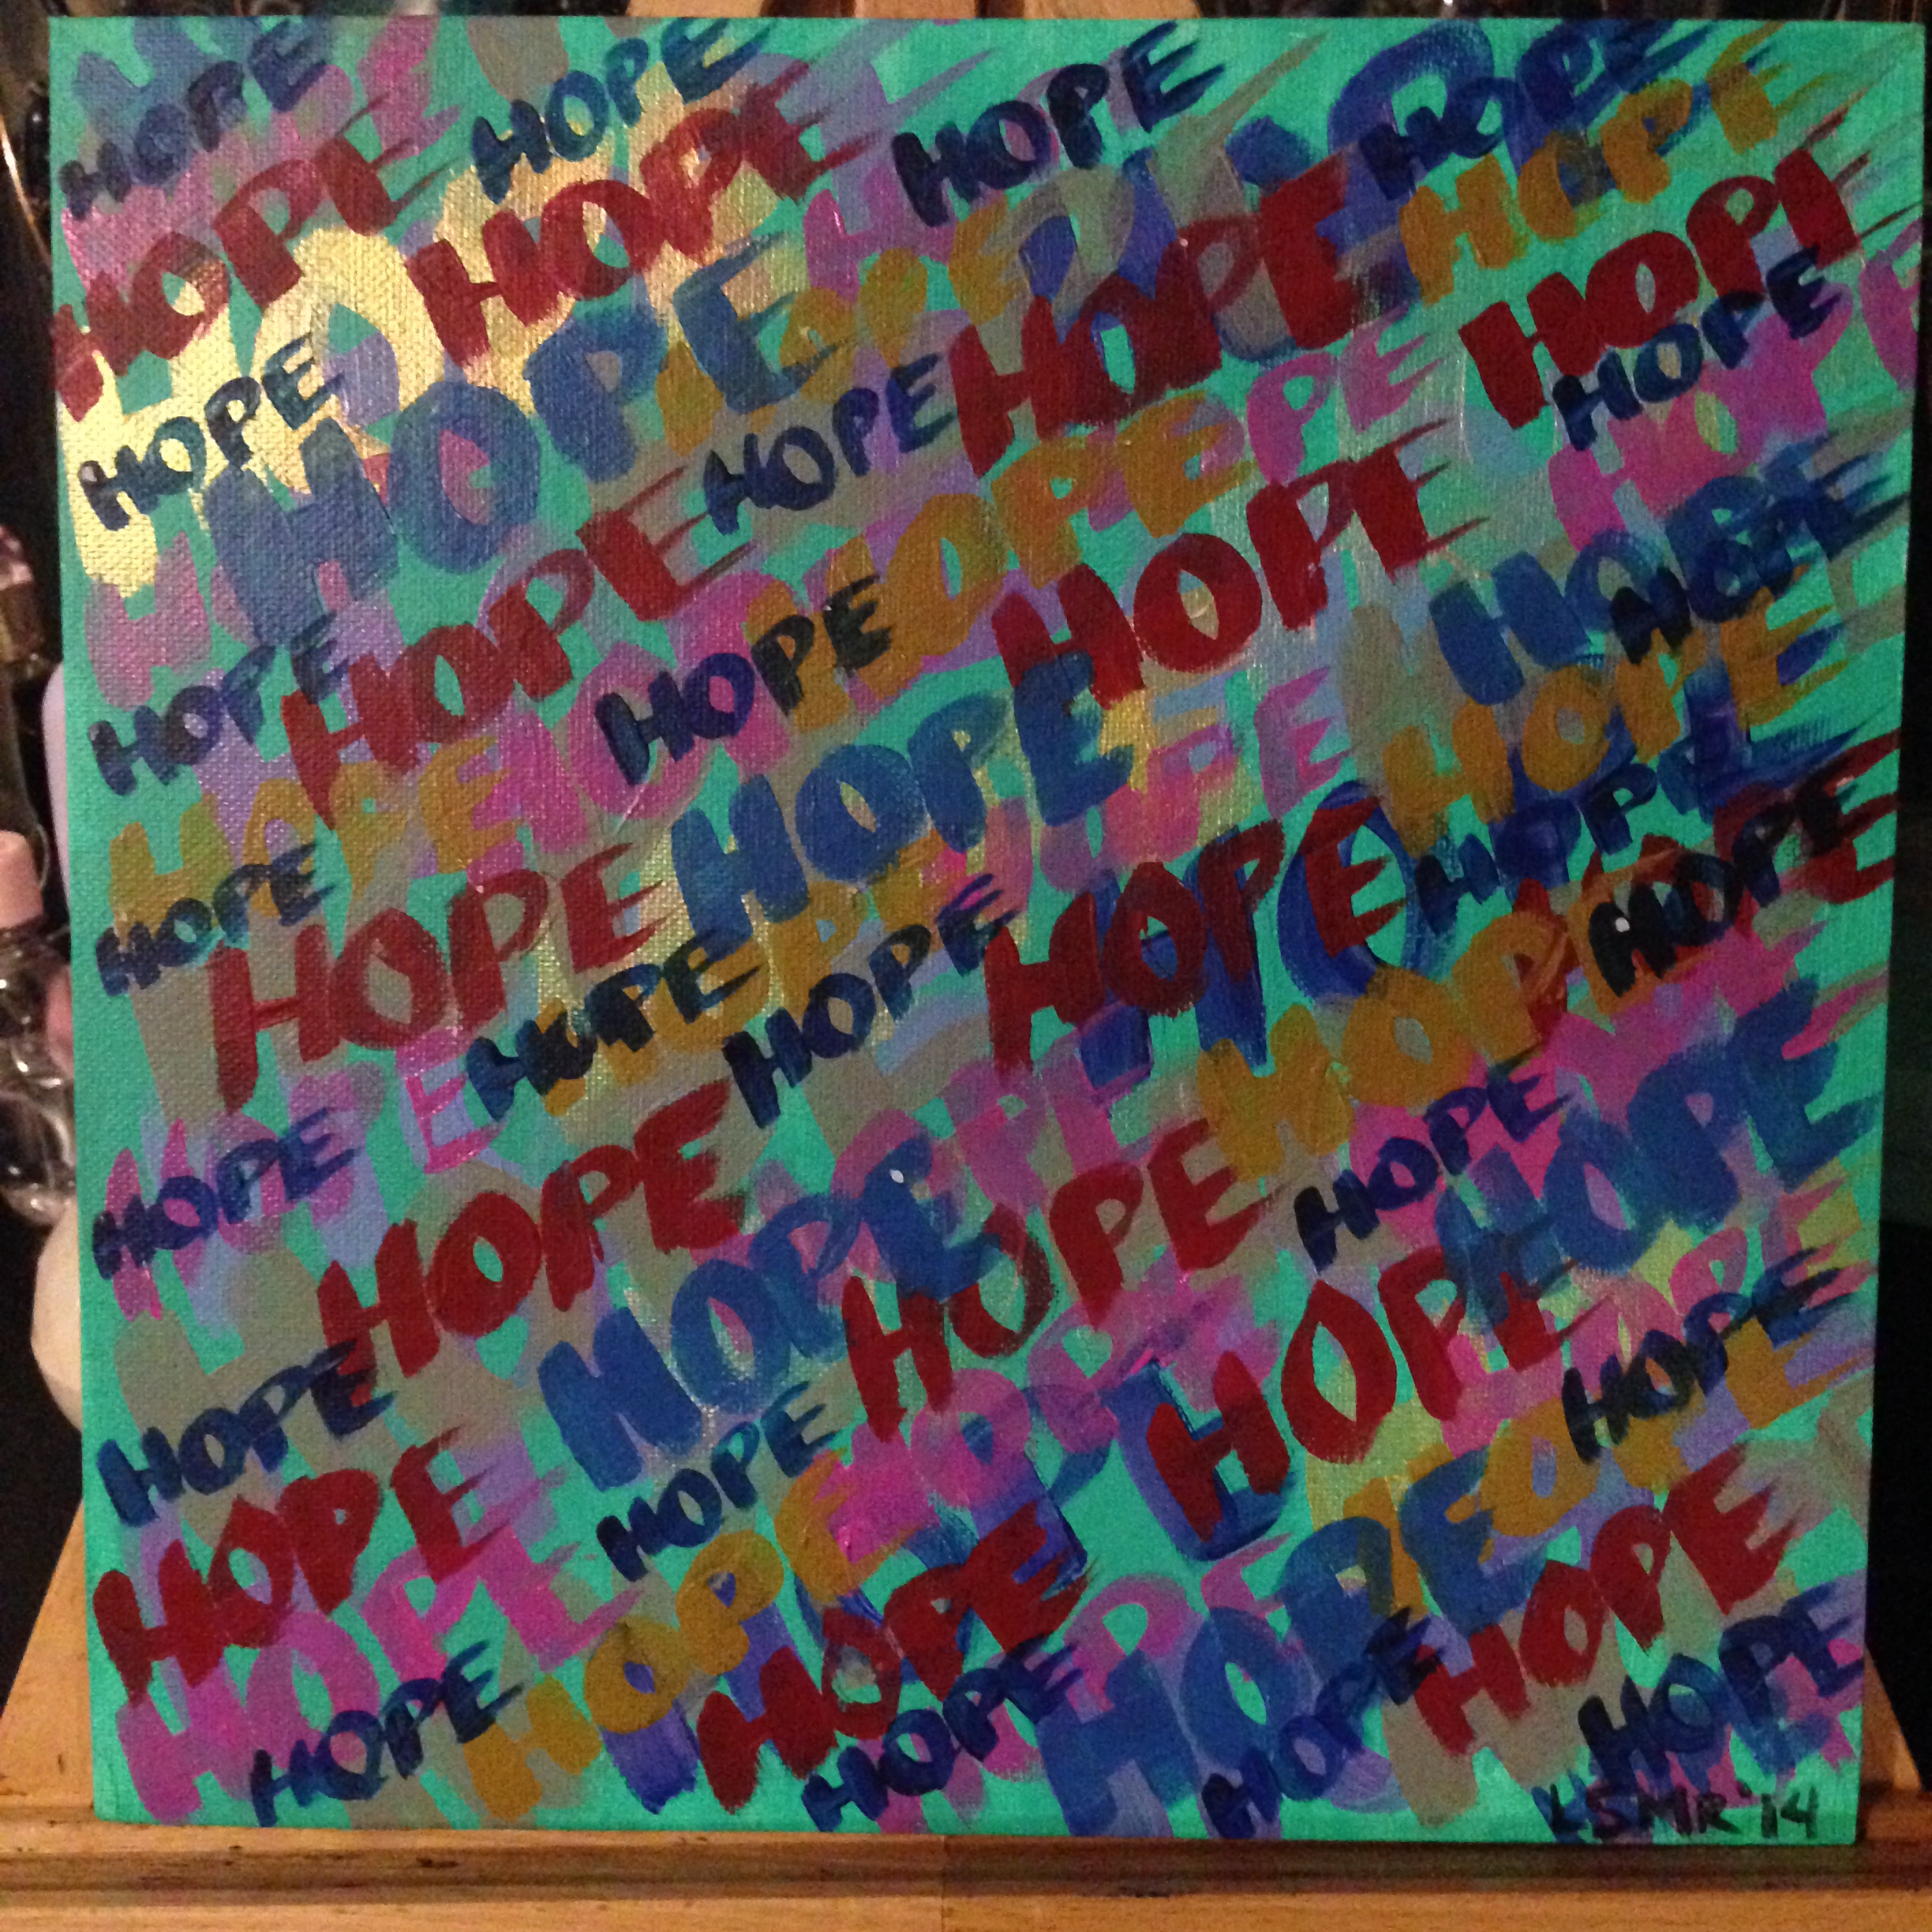 HOPE HOPE HOPE HOPE
HOPE HOPE HOPE HOPE
HOPE HOPE HOPE
HOPE HOPE HOPE HOPE
HOPE HOPE HOPE HOPE
HOPE HOPE HOPE HOPE
HOPE HOPE HOPE HOPE
HOPE HOPE HOPE HOPE
HOPE HOPE HOPE HOPE
HOPE HOPE HOPE HOPE
HOPE HOPE HOPE HOPE
HOPE HOPE HOPE HOPE
HOPE HOPE HOPE HOPE
HOPE HOPE HOPE HOPE
HOPE HOPE HOPE HOPE
LSMR '14